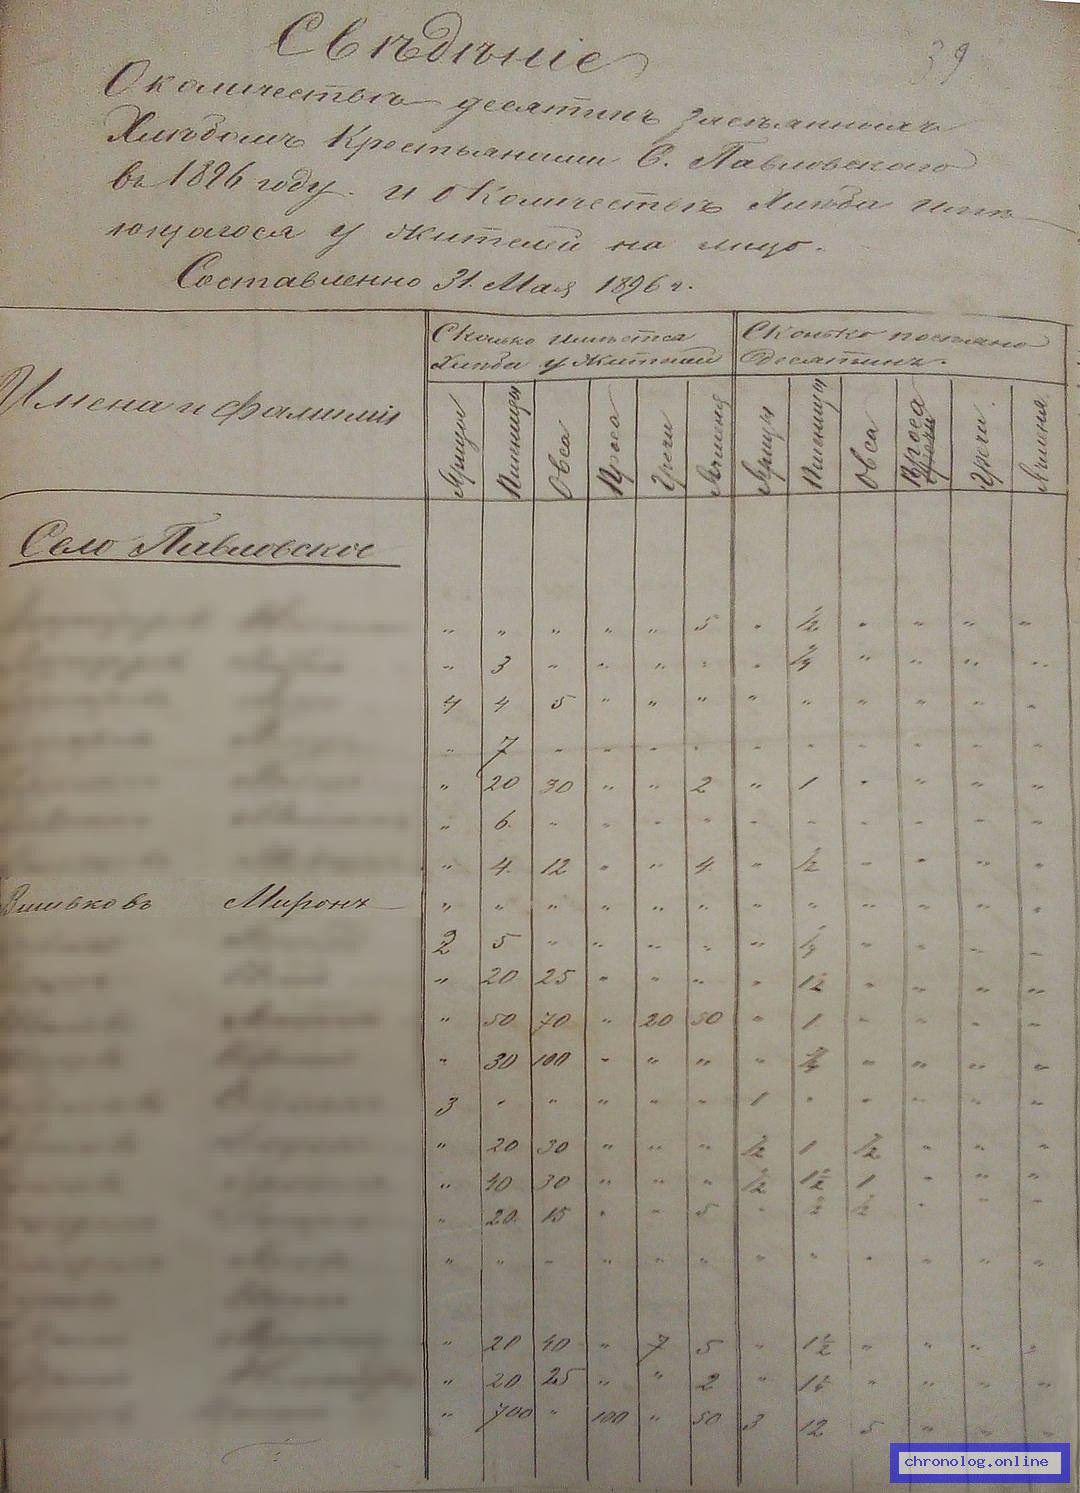 39
Свѣдѣніе
О количествѣ десятинъ засѣянныхъ
Хлѣбомъ Крестьянами С. Павловскаго
въ 1896 году. и о Количествѣ Хлѣба имѣ
ющагося у жителей на лицо.
Составленно 31. Мая 1896 г.
Имена и фамилии
Сколько имѣется
Хлѣба у Жителей
Сколько посѣяно
Десятинъ.
Ярицы Пшеницы Овса Проса Гречи Ячменя Ярицы Пшеницы Овса Проса Гречи Ячменя
Село Павловское
" " " " " 5 " 1/2 " " " "
" 3 " " " " " " " " "
4 4 5 " " " " " " " " "
" 7 " " " " " " " " " "
" 20 30 " " 2 " 1 " " " "
" 6. " " " " " " " " " "
" 4. 12 " " 4. " 1/2 " " " "
Миронъ " " " " " " " " " " " "
2 5 " " " " " 1/4 " " " "
" 20 25 " " " " 1 1/2 " " " "
" 50 70 " 20 30 " 1 " " " "
" 30 100 " " " " 3/4 " " " "
3 " " " " " 1 " " " " "
" 20 30 " " " 1/2 1 1/2 " " "
" 40 30 " " " 1/2 1 1/2 1 " " "
" 20. 15 " " 5 " 1/2 " " "
" " " " " " " " " " " "
" 20 40 " 7 5 " 1 1/2 " " " "
" 20 25 " " 2 " " " " "
" 700 " 100 " 50 3 12 5 " " "
chronolog.online